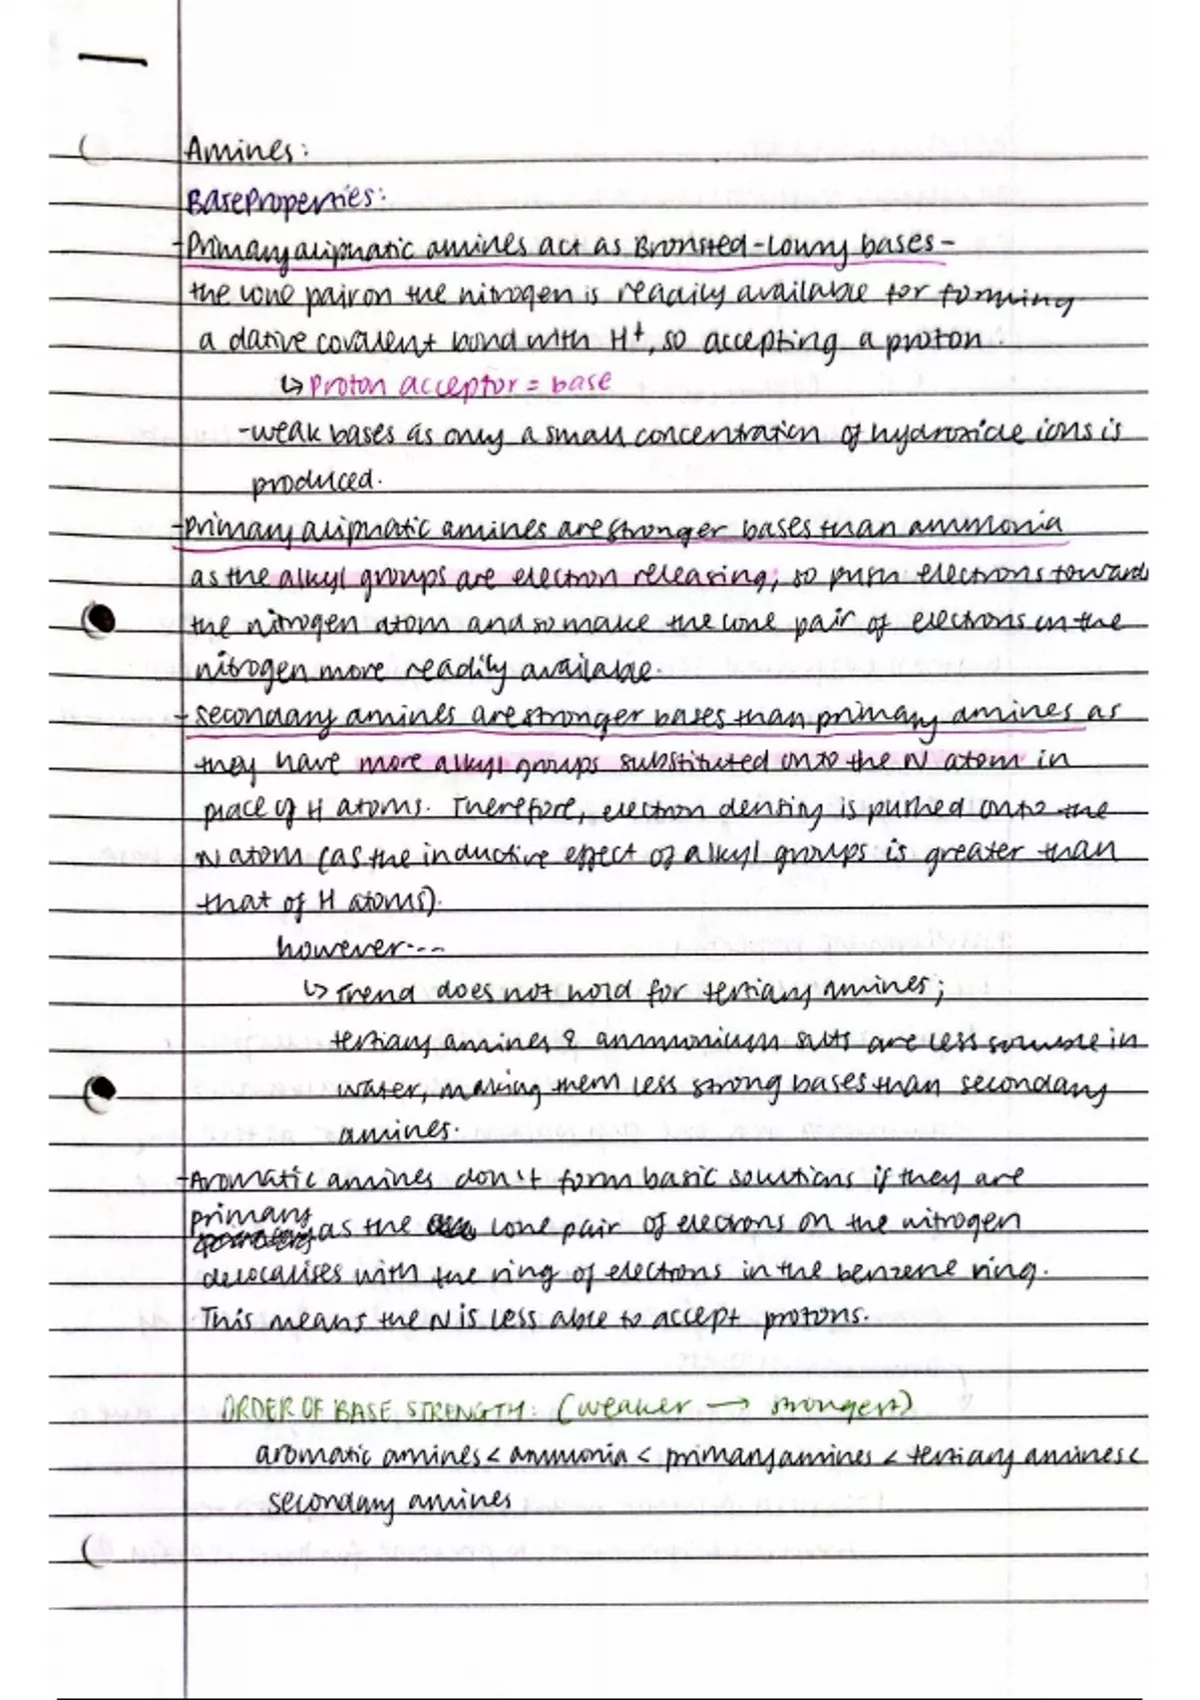 Amines:
Base Properties:
-Primary aliphatic amines act as Bronsted-Lowry bases-
the lone pair on the nitrogen is readily available for forming
a dative covalent bond with H+, so accepting a proton.
↳ Proton acceptor = base
-weak bases as only a small concentration of hydroxide ions is
produced.
-primary aliphatic amines are stronger bases than ammonia
as the alkyl groups are electron releasing; so push electrons towards
the nitrogen atom and so make the lone pair of electrons on the
nitrogen more readily available.
-secondary amines are stronger bases than primary amines as
they have more alkyl groups substituted onto the N atom in
place of H atoms. Therefore, electron density is pushed onto the
N atom (as the inductive effect of alkyl groups is greater than
that of H atoms).
however...
↳ Trend does not hold for tertiary amines;
tertiary amines & ammonium salts are less soluble in
water, making them less strong bases than secondary
amines.
-Aromatic amines don't form basic solutions if they are
primary as the lone pair of electrons on the nitrogen
delocalises with the ring of electrons in the benzene ring.
This means the N is less able to accept protons.
ORDER OF BASE STRENGTH: (weaker → strongest)
aromatic amines < ammonia < primary amines < tertiary amines <
secondary amines